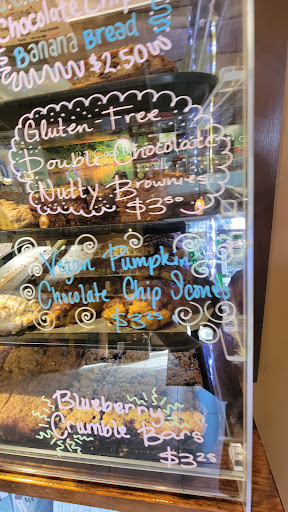 Chocolate Chip
Banana Bread
$2.50
Gluten Free
Double Chocolate
Nutty Brownies
$3.50
Vegan Pumpkin
Chocolate Chip Scones
$3.25
Blueberry
Crumble Bars
$3.25